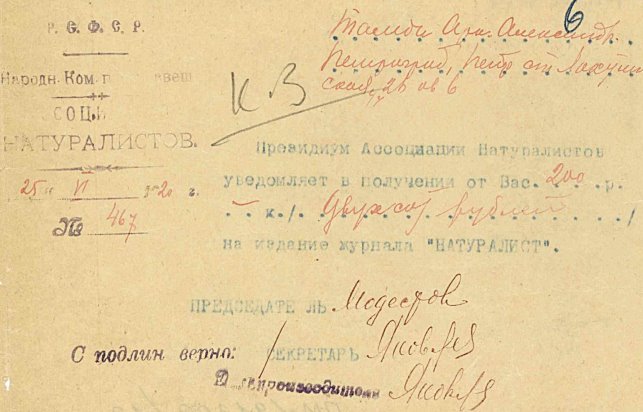 Р. С. Ф. С. Р.
Народн. Ком. п вещ
СОЦИ
НАТУРАЛИСТОВ.
25 VI 1920 г.
№ 467
6
Арк. Александр.
Петроград, Петр ст.
ская, 25 кв 6
К.В
Президиум Ассоциации Натуралистов
уведомляет в получении от Вас. 200 р.
к./. Двухсот рублей /
на издание журнала "НАТУРАЛИСТ".
ПРЕДСЕДАТЕ ЛЬ Модестов
С подлин верно: СЕКРЕТАРЬ Яковлев
Делопроизводитель Яковлев